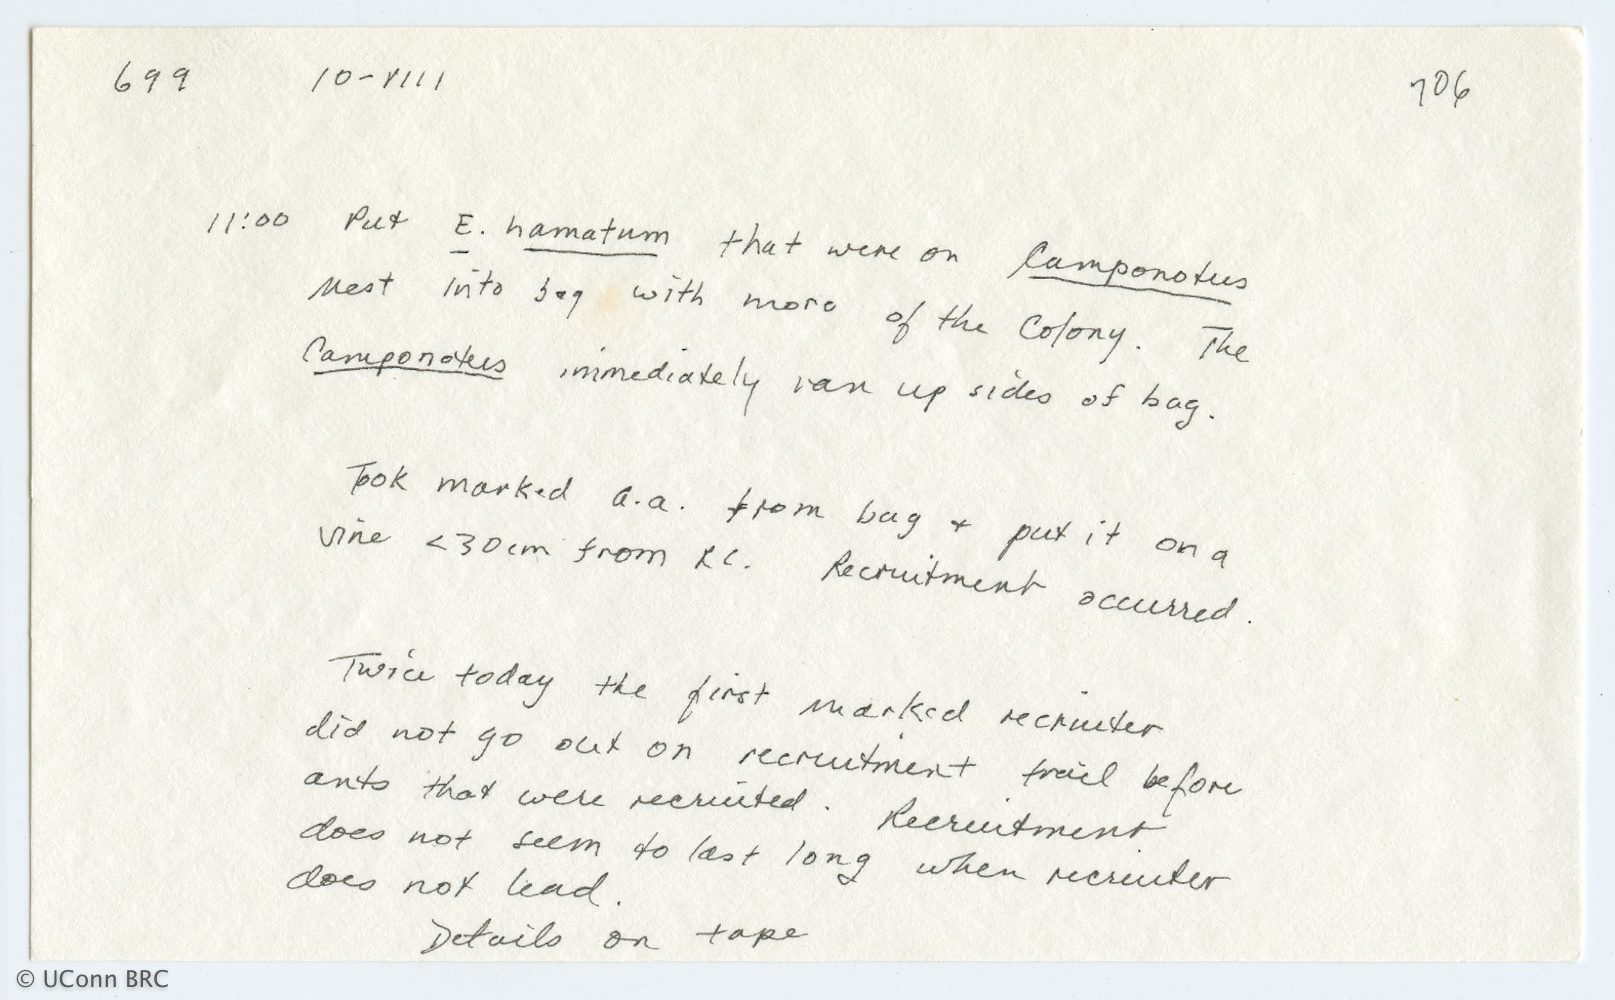 699 10-VIII 706
11:00 Put E. hamatum that were on Camponotus
nest into bag with more of the Colony. The
Camponotus immediately ran up sides of bag.
Took marked a.a. from bag + put it on a
vine <30cm from RC. Recruitment occurred.
Twice today the first marked recruiter
did not go out on recruitment trail before
ants that were recruited. Recruitment
does not seem to last long when recruiter
does not lead.
Details on tape
© UConn BRC